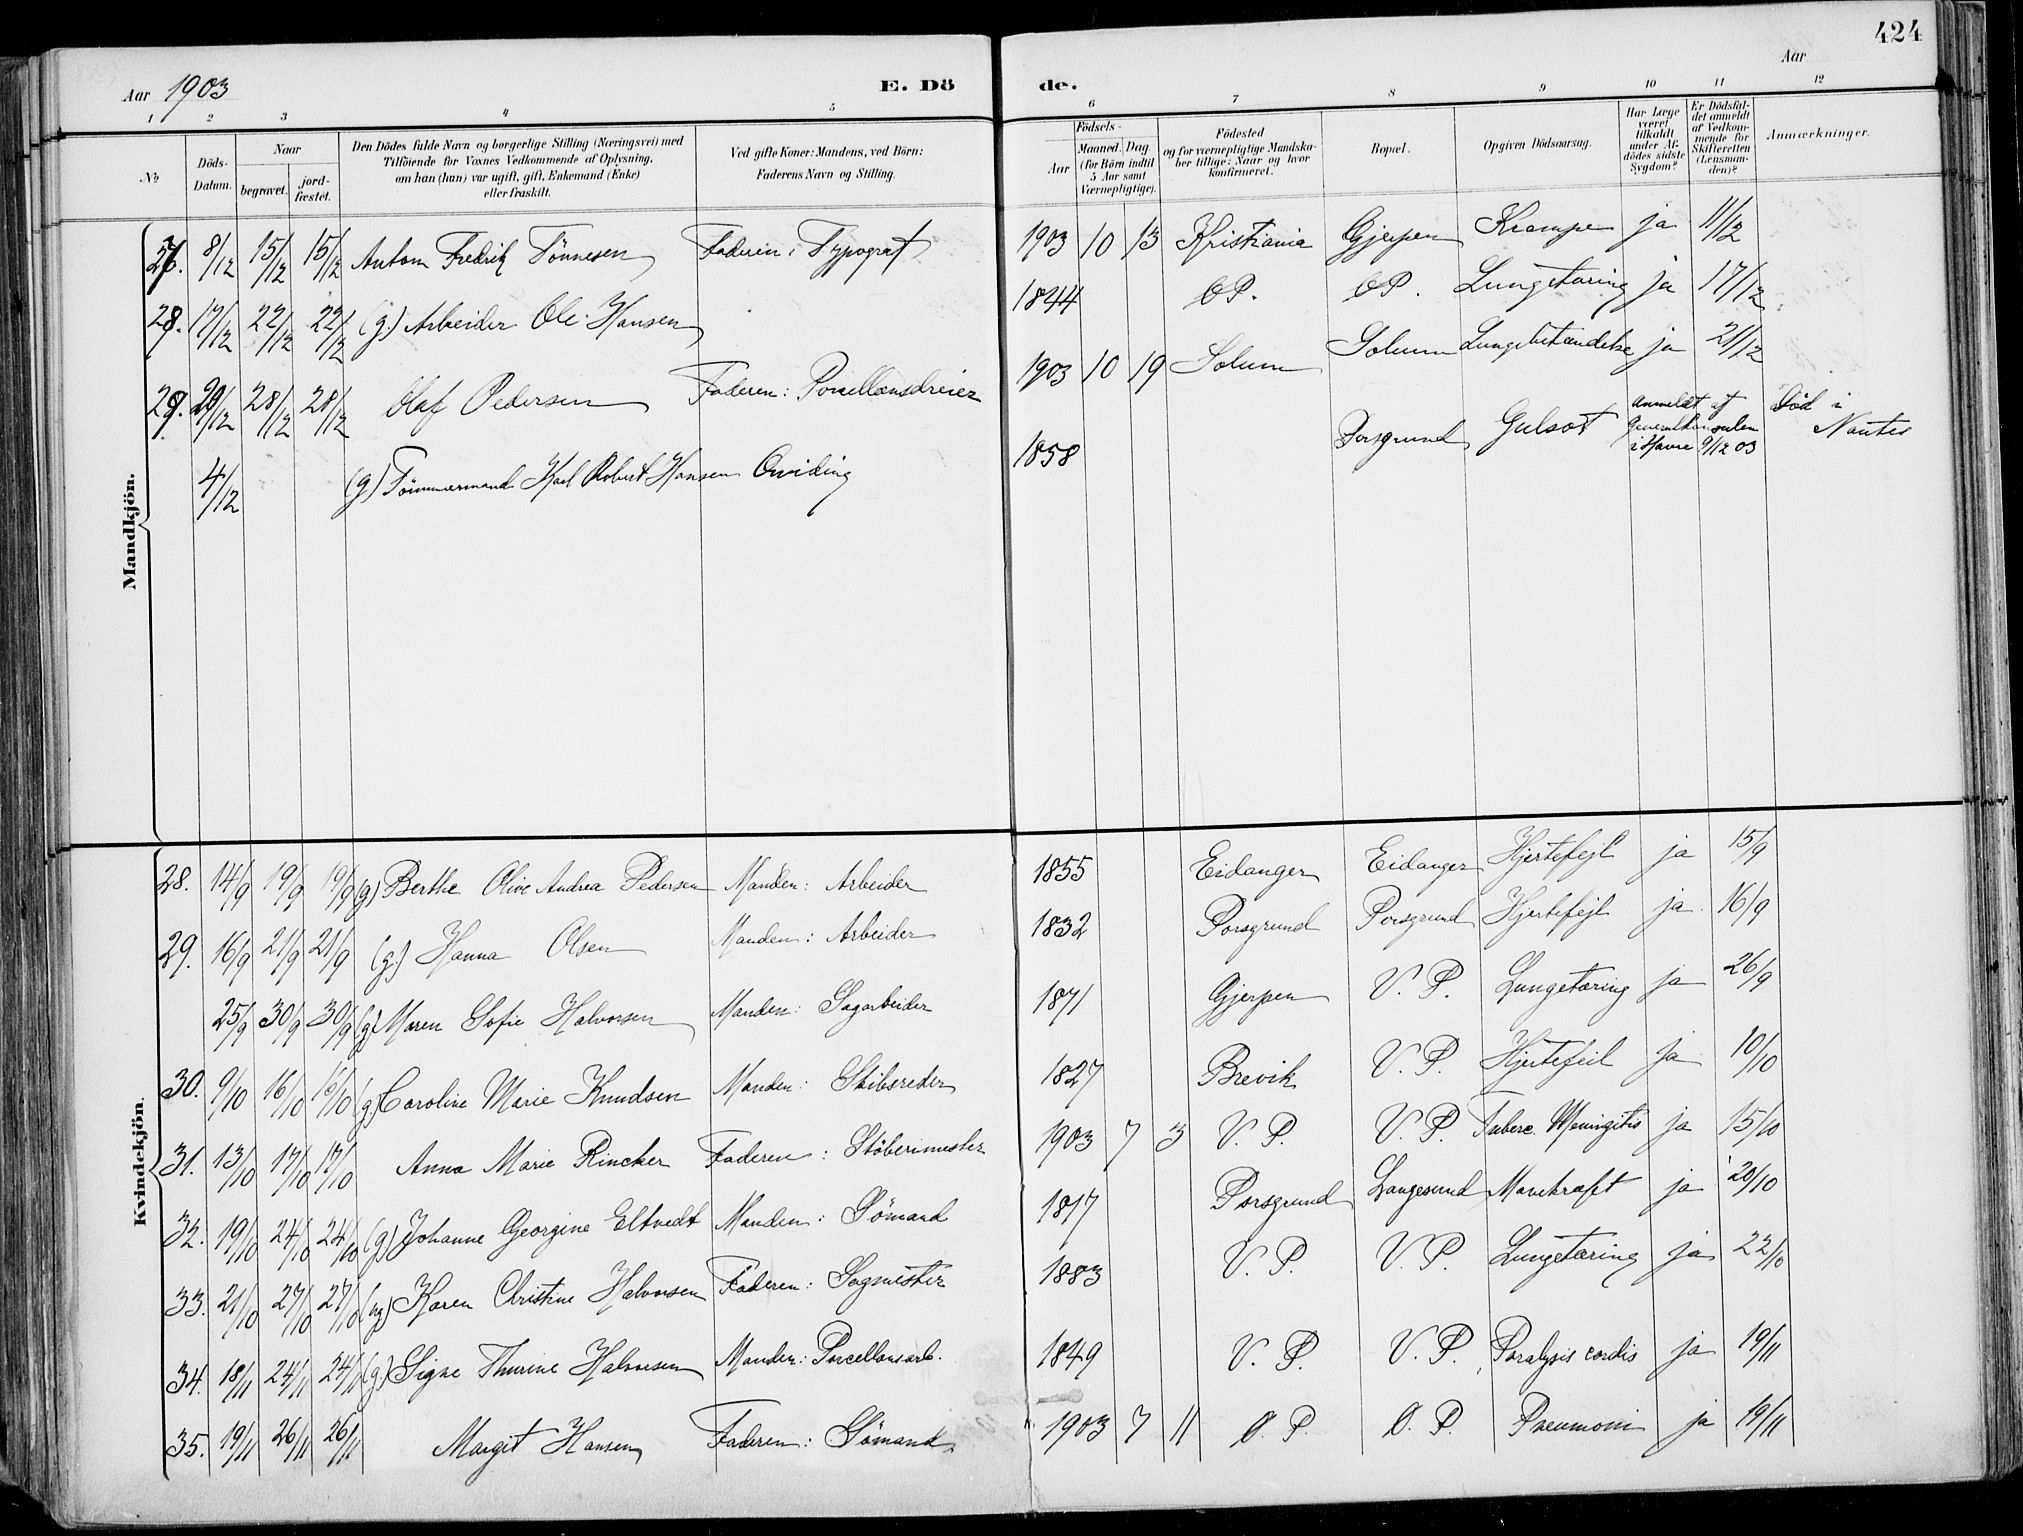 424
Aar 1903
E. Dö de.
Aar
1 2 3 4 5 6 7 8 9 10 11 12
№
Döds-Datum.
Naar
begravet.
jord-fæstet.
Den Dödes fulde Navn og borgerlige Stilling (Næringsvei) med
Tilföiende for Voxnes Vedkommende af Oplysning,
om han (hun) var ugift, gift, Enkemand (Enke)
eller fraskilt.
Ved gifte Koner: Mandens, ved Börn:
Faderens Navn og Stilling.
Födsels-
Aar
Maaned. Dag
(for Börn indtil
5 Aar samt
Værnepligtige).
Födested
og for værnepligtige Mandska-
ber tillige: Naar og hvor
konfirmeret.
Bopæl.
Opgiven Dödsaarsag.
Har Læge
været
tilkaldt
under Af-
dödes sidste
Sygdom?
Er Dödsfal-
det anmeldt
af Vedkom-
mende for
Skifteretten
(Lensman-
den)?
Anmærkninger.
Mandkjön.
27. 8/12 15/12 15/12 Anton Fredrik Tönnesen Faderen: Typograf 1903 10 13 Kristiania Gjerpen Krampe ja 11/12
28. 17/12 22/12 22/12 (g.) Arbeider Ole Hansen 1844 ØP. ØP. Lungetæring ja 17/12
29. 20/12 28/12 28/12 Olaf Pedersen Faderen: Porcellænsdreier 1903 10 19 Solum Solum Lungebetændelse ja 21/12
4/12 (g) Tömmermand Karl Robert Hansen Qviding 1858 Porsgrund Gulsot Anmeldt af Generalkonsulen i Havre 9/12 03 Död i Nantes
Kvindekjön.
28. 14/9 19/9 19/9 (g) Berthe Olive Andrea Pedersen Manden: Arbeider 1855 Eidanger Eidanger Hjertefejl ja 15/9
29. 16/9 21/9 21/9 (g.) Hanna Olsen Manden: Arbeider 1832 Porsgrund Porsgrund Hjertefejl ja 16/9
25/9 30/9 30/9 (g) Maren Sofie Halvorsen Manden: Sagarbeider 1871 Gjerpen V. P. Lungetæring ja 26/9
30. 9/10 16/10 16/10 (g) Caroline Marie Knudsen Manden: Skibsreder 1827 Brevik V. P. Hjertefeil ja 10/10
31. 13/10 17/10 17/10 Anna Marie Rincker Faderen: Stöberimester 1903 7 3 V. P. V. P. Tuberc. Meningitis ja 15/10
32. 19/10 24/10 24/10 (g) Johanne Georgine Eltvedt Manden: Sömand 1817 Porsgrund Langesund Mavekræft ja 20/10
33. 21/10 27/10 27/10 (ug) Karen Christine Halvorsen Faderen: Sagmester 1883 V. P. V. P. Lungetæring ja 22/10
34. 18/11 24/11 24/11 (g.) Signe Thurine Halvorsen Manden: Porcellænsarb. 1849 V. P. V. P. Paralysis cordis ja 19/11
35. 19/11 26/11 26/11 Margit Hansen Faderen: Sömand 1903 7 11 Ø. P. Ø. P. Pneumoni ja 19/11